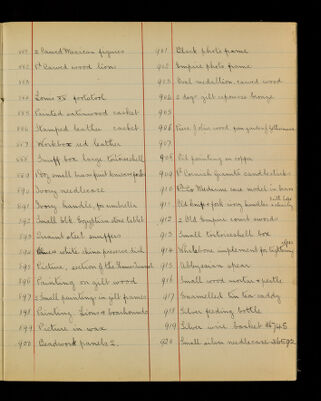 881 2 Carved Maorian figures
882 Pr Carved wood lions
883
884 Louis XV footstool
885 Painted satinwood casket
886 Stamped leather casket
887 Workbox red leather
888 Snuff box large tortoiseshell
889 Box, small
890 Ivory needlecase
891 Ivory handle, for umbrella
892 Small old Egyptian stone tablet
893 Servant steel snuffers
894 white china preserve dish
895 Picture, section of the
896 Painting on gilt wood
897 2 Small paintings in gilt frames
898 Painting Lions & boarhounds
899 Picture in wax
900 Beadwork panels 2.
901 Black photo frame
902 Empire photo frame
903 Oval medallion, carved wood
904 2 dogs gilt repousse bronze
905
906 Pierre
907
908 Oil painting on copper
909 Pr Cornish granite candlesticks
910 Medicine case model in brass
911 Old knife & fork ivory handles
912 2 Old Empire court swords
913 Small tortoiseshell box
914 Whalebone implement for tightening
915 Abbyssinian spear
916 Small wood mortar & pestle
917 Enamelled tin tea caddy
918 Silver feeding bottle
919 Silver wire basket
920 Small silver needlecase